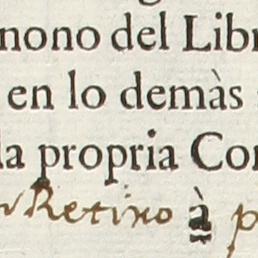 nono del Libr
en lo demàs
la propria Con
Retiro à p